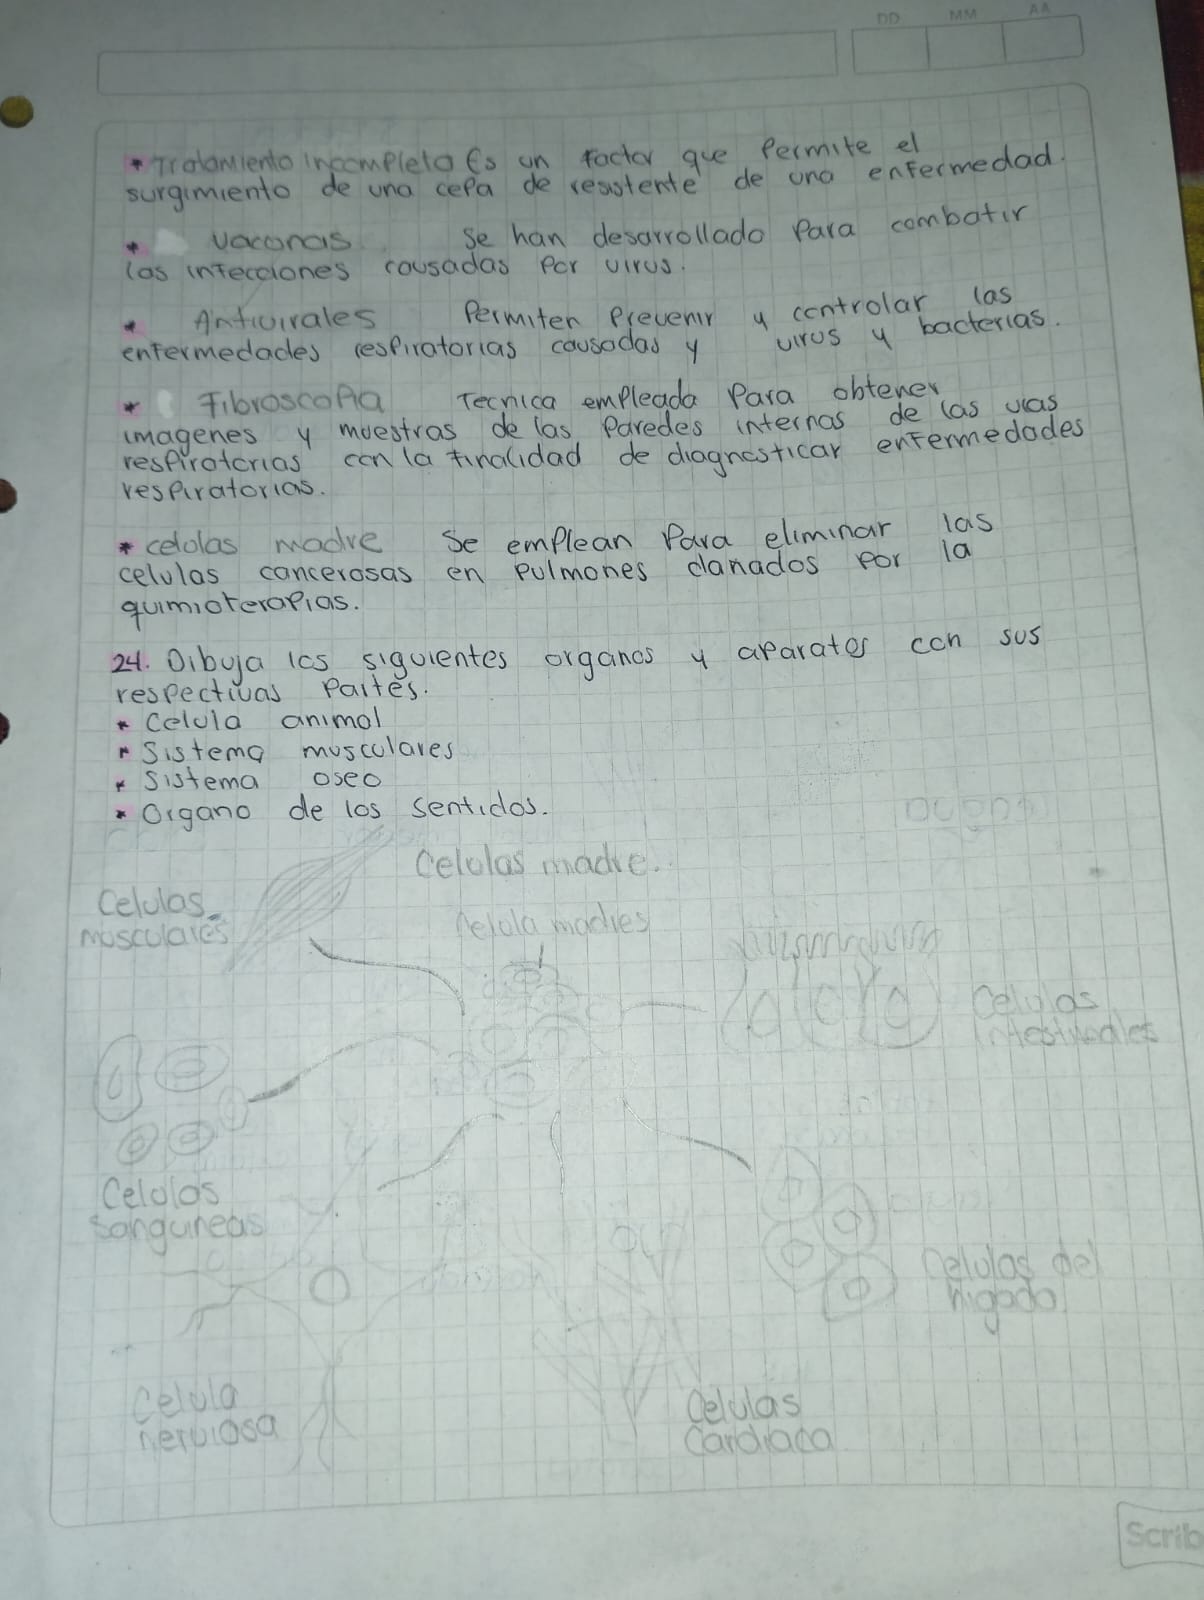 DD MM AA
* Tratamiento Incompleto Es un factor que Permite el
surgimiento de una cepa de resistente de una enfermedad.
* vacunas se han desarrollado Para combatir
las infecciones causadas Por virus.
* Antivirales Permiten Prevenir y controlar las
enfermedades respiratorias causadas y virus y bacterias.
* Fibroscopia Tecnica empleada Para obtener
imagenes y muestras de las Paredes internas de las vias
respiratorias con la finalidad de diagnosticar enfermedades
respiratorias.
* celulas madre Se emplean Para eliminar las
celulas cancerosas en Pulmones danados por la
quimioterapias.
24. Dibuja los siguientes organos y aparatos con sus
respectivas Partes.
* Celula animal
* Sistema musculares
* Sistema oseo
* Organo de los sentidos.
Celulas madre.
Celulas
musculares
Celula madres
Celulas
Intestinales
Celulas
Sanguineas
Celulas del
higado
Celula
nerviosa
Celulas
Cardiaca
Scrib